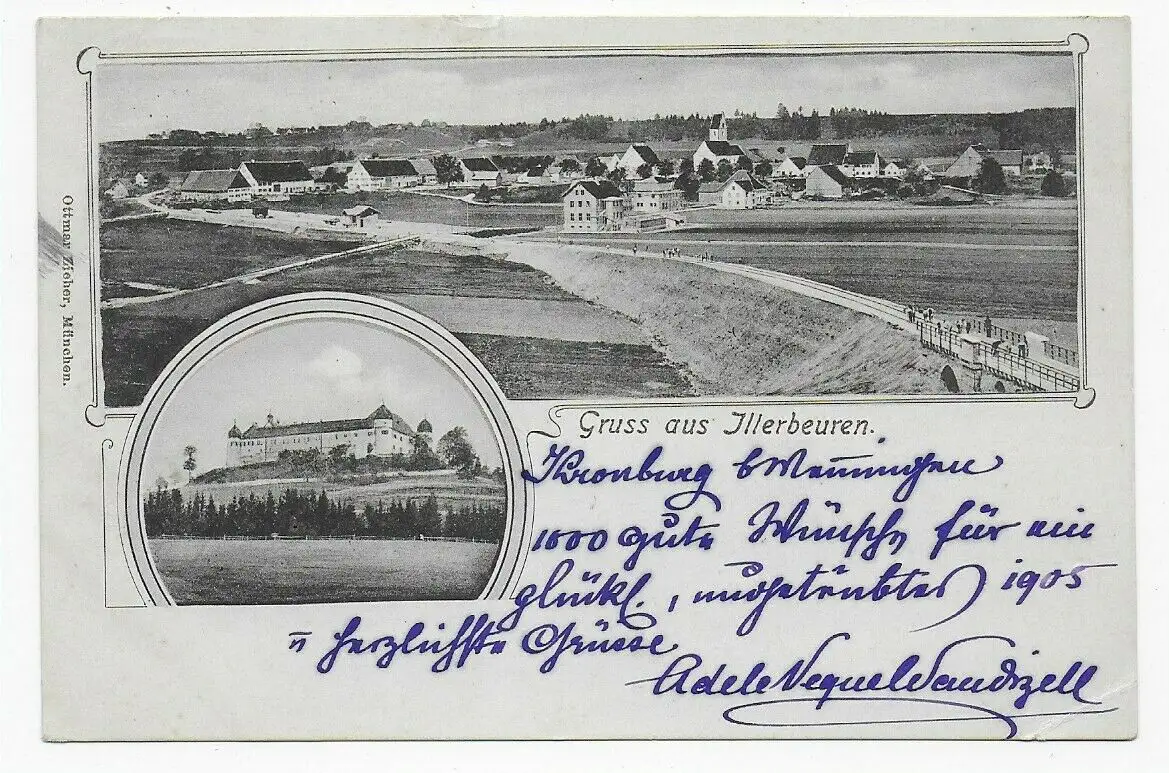 Ottmar Zieher, München.
Gruss aus Illerbeuren.
Kronburg b/Memmingen
1000 gute Wünsche für ein
glückl., ungetrübtes 1905
u herzlichste Grüsse
Adele Vequel Wandizell